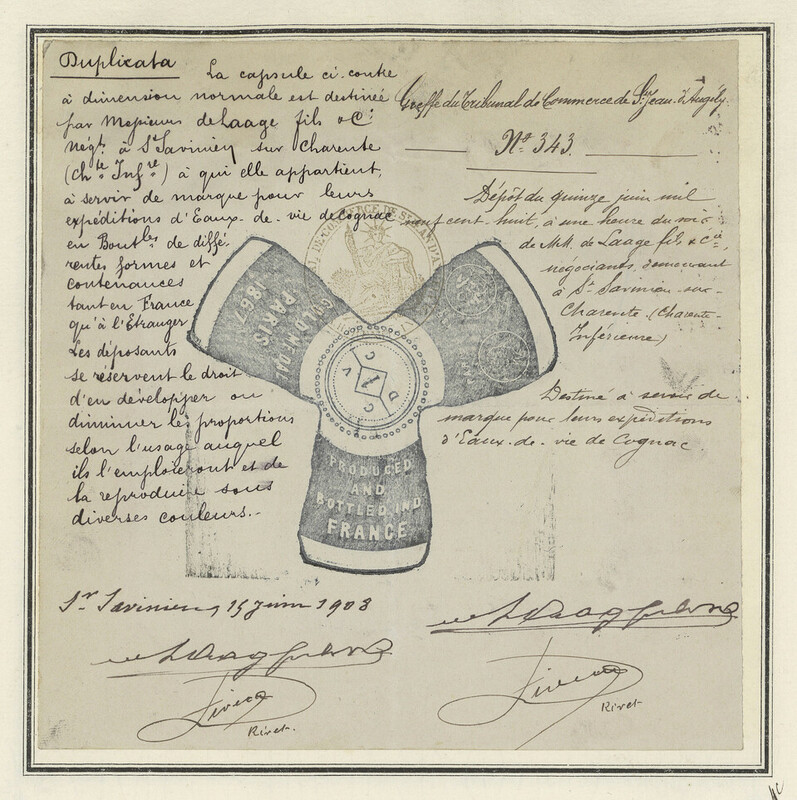 Duplicata
La capsule ci-contre
à dimension normale est destinée
par Messieurs de Laage fils & Cie
Négts à St Savinien sur Charente
(Chte Infre) à qui elle appartient,
à servir de marque pour leurs
expéditions d'Eaux-de-vie de cognac
en Boutles de diffé-
rentes formes et
contenances
tant en France
qu'à l'Étranger
Les déposants
se réservent le droit
d'en développer ou
diminuer les proportions
selon l'usage auquel
ils l'emploieront et de
la reproduire sous
diverses couleurs.-
St Savinien, 15 Juin 1908
Rivet.
Greffe du Tribunal de Commerce de St Jean d'Angély.
No 343.
Dépôt du quinze juin mil
neuf cent huit, à une heure du soir
de MM. de Laage fils & Cie,
négociants, demeurant
à St Savinien-sur-
Charente. (Charente-
Inférieure)
Destiné à servir de
marque pour leurs expéditions
d'Eaux-de-vie de Cognac.
Rivet.
GOLD MEDAL
PARIS
1867
PRODUCED
AND
BOTTLED IN
FRANCE